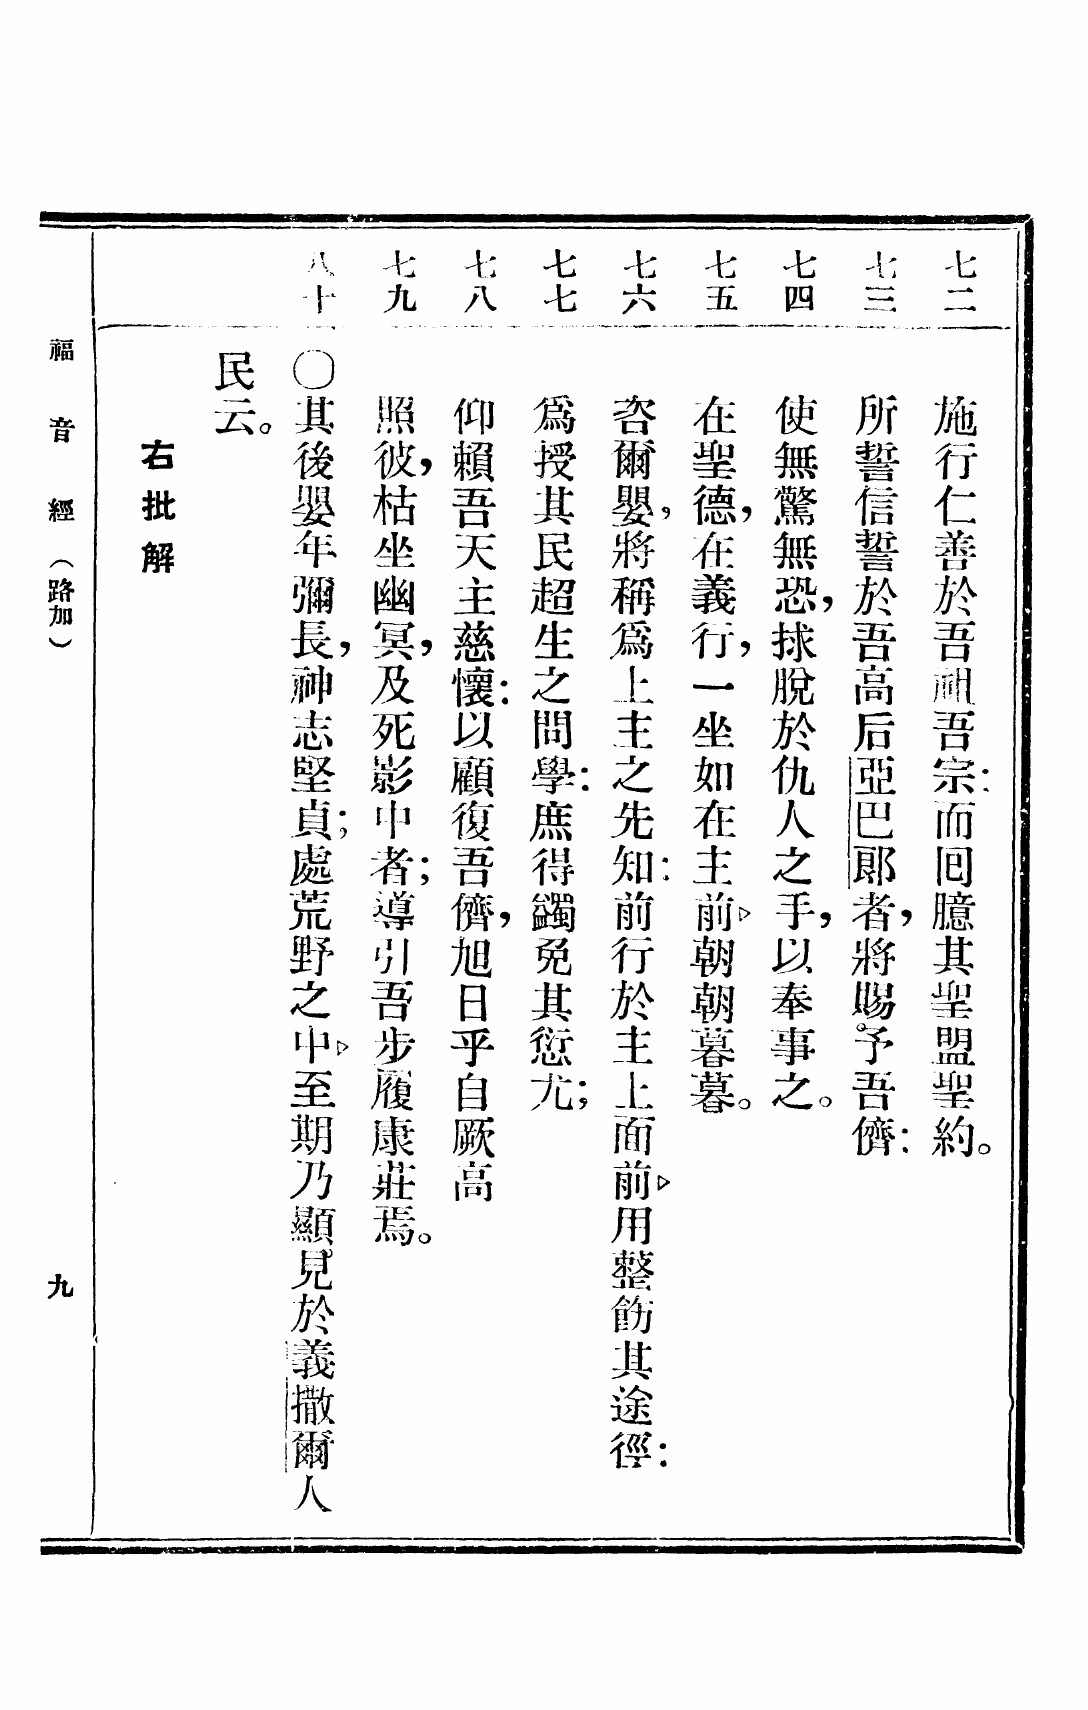 七二 施行仁善於吾祖吾宗：而囘臆其聖盟聖約。
七三 所誓信誓於吾高后亞巴郞者，將賜予吾儕：
七四 使無驚無恐，捄脫於仇人之手，以奉事之。
七五 在聖德，在義行，一坐如在主前▹朝朝暮暮。
七六 咨爾嬰，將稱爲上主之先知：前行於主上面前▹用整飭其途徑：
七七 爲授其民超生之問學：庶得蠲免其愆尤；
七八 仰賴吾天主慈懷：以顧復吾儕，旭日乎自厥高
七九 照彼，枯坐幽冥，及死影中者；導引吾步履康莊焉。
八十 〇其後嬰年彌長，神志堅貞；處荒野之中▹至期乃顯見於義撒爾人
民云。
右批解
福音經（路加）
九